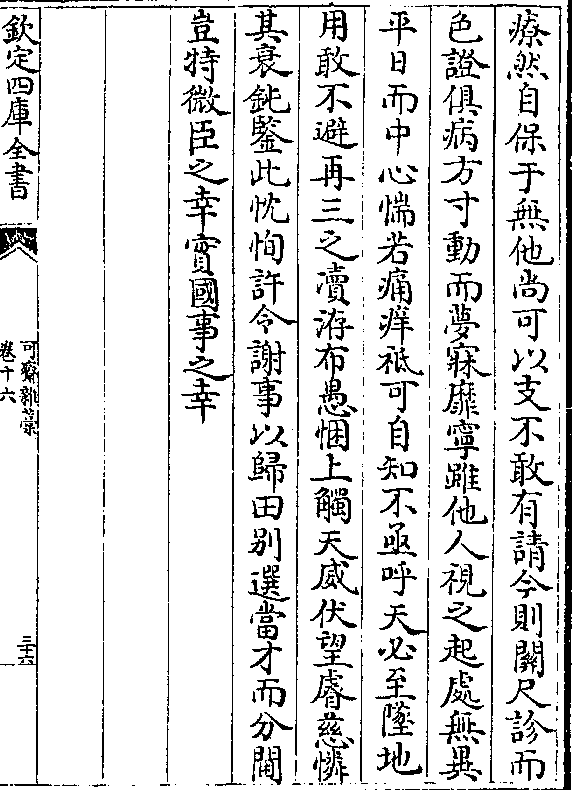 療然自保于無他尚可以支不敢有請今則關尺診而
色證俱病方寸動而夢寐靡寧雖他人視之起處無異
平日而中心惴若痛痒祗可自知不亟呼天必至墜地
用敢不避再三之瀆洊布愚悃上觸天威伏望睿慈憐
其衰鈍鑒此忱恂許令謝事以歸田别選當才而分閫
豈特微臣之幸實國事之幸
欽定四庫全書
可齋雜藁
卷十六
三十六